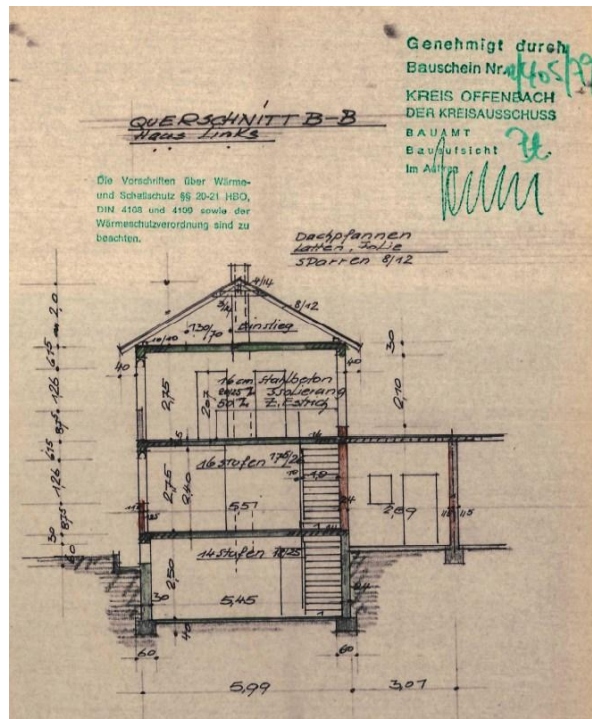 Genehmigt durch
Bauschein Nr. 405/79
KREIS OFFENBACH
DER KREISAUSSCHUSS
BAUAMT
Bauaufsicht
Im Auftrag
QUERSCHNITT B-B
Haus Links
Die Vorschriften über Wärme-
und Schallschutz §§ 20-21 HBO,
DIN 4108 und 4109 sowie der
Wärmeschutzverordnung sind zu
beachten.
Dachpfannen
Latten, Folie
Sparren 8/12
8/12
130/70 Einstieg
10/10
40
40
30
2,10
2,75
2,07
16 cm Stahlbeton
Isolierung
Z. Estrich
16 Stufen
2,75
2,40
5,51
2,69
11,5
61,5
1,26
87,5
61,5
1,26
87,5
30
14 Stufen
2,50
30
5,45
24
40
60
60
5,99
3,07